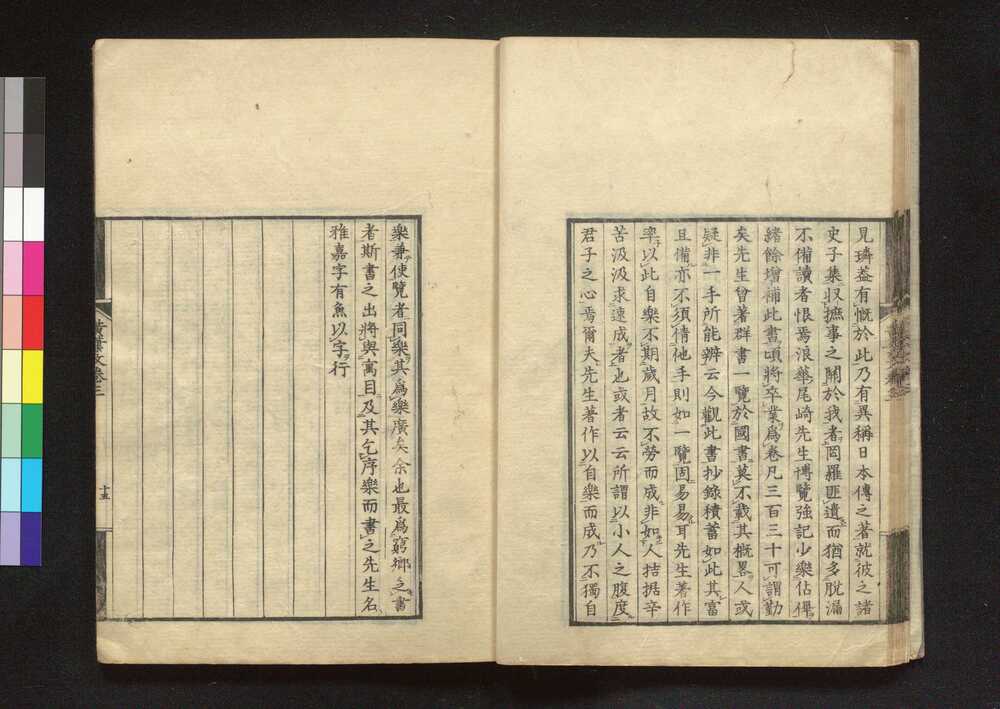 見璘葢有慨於此乃有異稱日本傳之著就彼之諸
史子集収摭事之關於我者罔羅匪遺而猶多脱漏
不備讀者恨焉浪華尾崎先生博覽強記少樂佔俾
緒餘增補此書頃將卒業爲卷凡三百三十可謂勤
矣先生曾著群書一覽於國書莫不載其概畧人或
疑非一手所能辨云今觀此書抄録積蓄如此其富
且備亦不須倩他手則如一覽固易易耳先生著作
率以此自樂不期歲月故不勞而成非如人拮据辛
苦汲汲求速成者也或者云云所謂以小人之腹度
君子之心焉爾夫先生著作以自樂而成乃不獨自
樂兼使覽者同樂其爲樂廣矣余也最爲窮鄉之書
者斯書之出將與寓目及其乞序樂而書之先生名
雅嘉字有魚以字行
卷三
十五